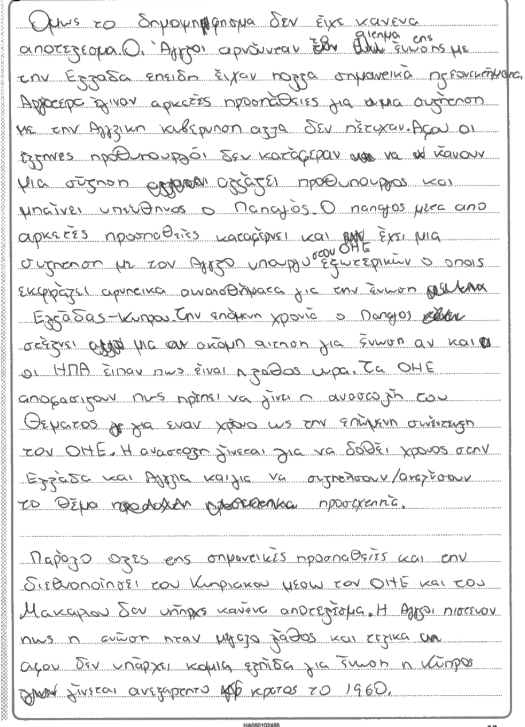 Όμως το δημοψήφησμα δεν είχε κανενα
αποτελεσμα. Οι Άγγλοι αρνόυνταν το αιτημα της ένωσης με
την Ελλαδα επειδη έιχαν πολλα σημανεικά πλεονεκτήματα,
Αργοτερα έγιναν αρκετές προσπάθειες για μια συζητηση
με την Αγγλικη κυβέρνηση αλλα δεν πέτυχαν. Αφου οι
έλληνες πρόθυπουργόι δεν κατάφεραν να κανουν
μια σύζηση αλλάζει προθυπουργος και
μπαίνει υπέυθηνος ο Παπαγός. Ο παπαγος μετα απο
αρκετές προσπαθείες καταφέρνει και έχει μια
συζητηση με τον Αγγλο υπουργο στον ΟΗΕ εξωτερικών ο οποιος
εκφράζει αρνητικα συναισθήματα για την ένωση
Ελλάδας-Κυπρου. Την επόμενη χρονία ο Παπαγος
στέλνει μια ακόμη αιτηση για ένωση αν και
οι ΗΠΑ έιπαν πως είναι η λαθος ωρα. Τα ΟΗΕ
αποφασιζουν πως πρέπει να γίνει η αναστολή του
Θέματος για εναν χρόνο ως την επόμενη συνέλευση
του ΟΗΕ. Η αναστολη γίνεται για να δοθέι χρονος στην
Ελλαδα και Αγγλια και για να συζητήσουν/αναλύσουν
το θέμα προσεχτικά.
Παρόλο ολες της σημαντικές προσπαθείες και την
διεθνοποίησει του Κυπριακου μεσω τον ΟΗΕ και του
Μακαριου δεν υπήρχε κανένα αποτελέσμα. Η Αγγλοι πιστευον
πως η ενωση ηταν μεγαλο λάθος και τελικα
αφου δεν υπάρχει καμια ελπιδα για ένωση η Κύπρος
γίνεται ανεξαρτητο κρατος το 1960.
HA080102485